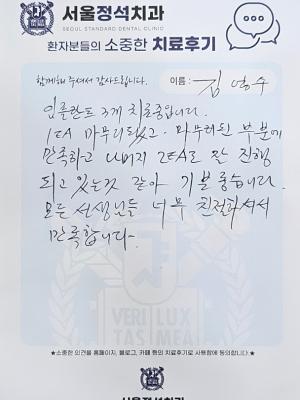 서울정석치과
SEOUL STANDARD DENTAL CLINIC
환자분들의 소중한 치료후기
함께해 주셔서 감사드립니다.
이름 : 김영수
임플란트 3개 치료중입니다.
1EA 마무리되었고. 마무리된 부분에
만족하고 나머지 2EA로 잘 진행
되고 있는것 같아 기분 좋습니다.
모든 선생님들 너무 친절하셔서
만족합니다.
VERI LUX
TAS MEA
★소중한 의견을 홈페이지, 블로그, 카페 등의 치료후기로 사용함에 동의합니다.★
서울정석치과